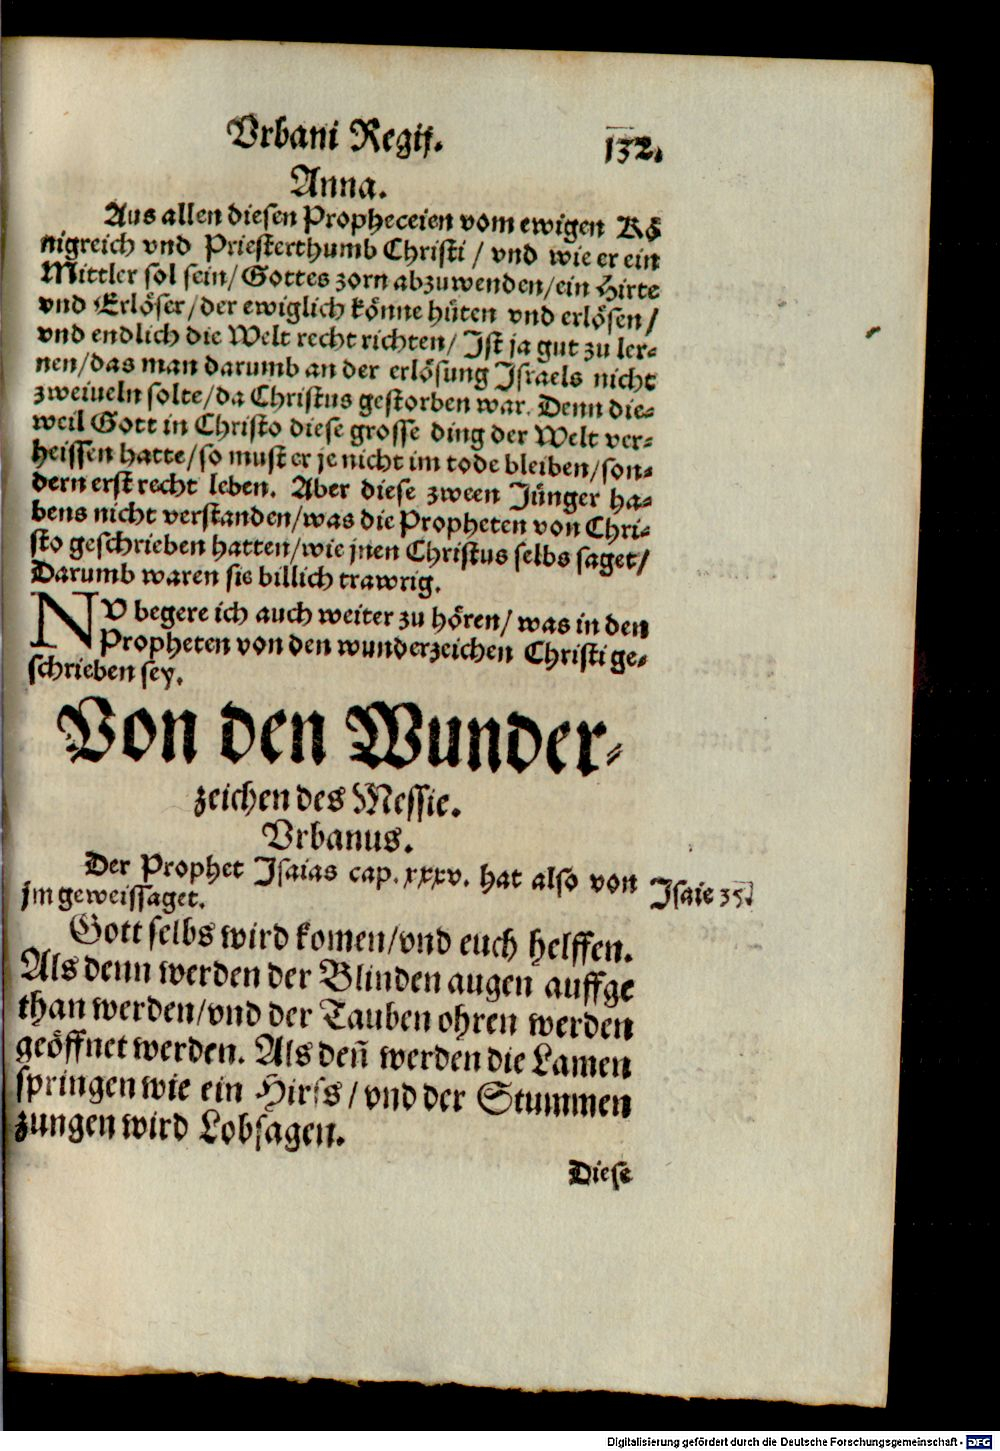 Vrbani Regij.
132.
Anna.
Aus allen diesen Propheceien vom ewigen Kö
nigreich vnd Priesterthumb Christi / vnd wie er ein
Mittler sol sein / Gottes zorn abzuwenden / ein Hirte
vnd Erlöser / der ewiglich könne hüten vnd erlösen /
vnd endlich die Welt recht richten / Ist ja gut zu ler-
nen / das man darumb an der erlösung Israels nicht
zweiueln solte / da Christus gestorben war. Denn die-
weil Gott in Christo diese grosse ding der Welt ver-
heissen hatte / so must er je nicht im tode bleiben / son-
dern erst recht leben. Aber diese zween Jünger ha-
bens nicht verstanden / was die Propheten von Chri-
sto geschrieben hatten / wie jnen Christus selbs saget /
Darumb waren sie billich trawrig.
NV begere ich auch weiter zu hören / was in den
Propheten von den wunderzeichen Christi ge-
schrieben sey.
Von den Wunder-
zeichen des Messie.
Vrbanus.
Der Prophet Isaias cap. xxxv. hat also von
jm geweissaget.
Isaie 35.
Gott selbs wird komen / vnd euch helffen.
Als denn werden der Blinden augen auffge
than werden / vnd der Tauben ohren werden
geöffnet werden. Als deñ werden die Lamen
springen wie ein Hirss / vnd der Stummen
zungen wird Lobsagen.
Diese
Digitalisierung gefördert durch die Deutsche Forschungsgemeinschaft - DFG